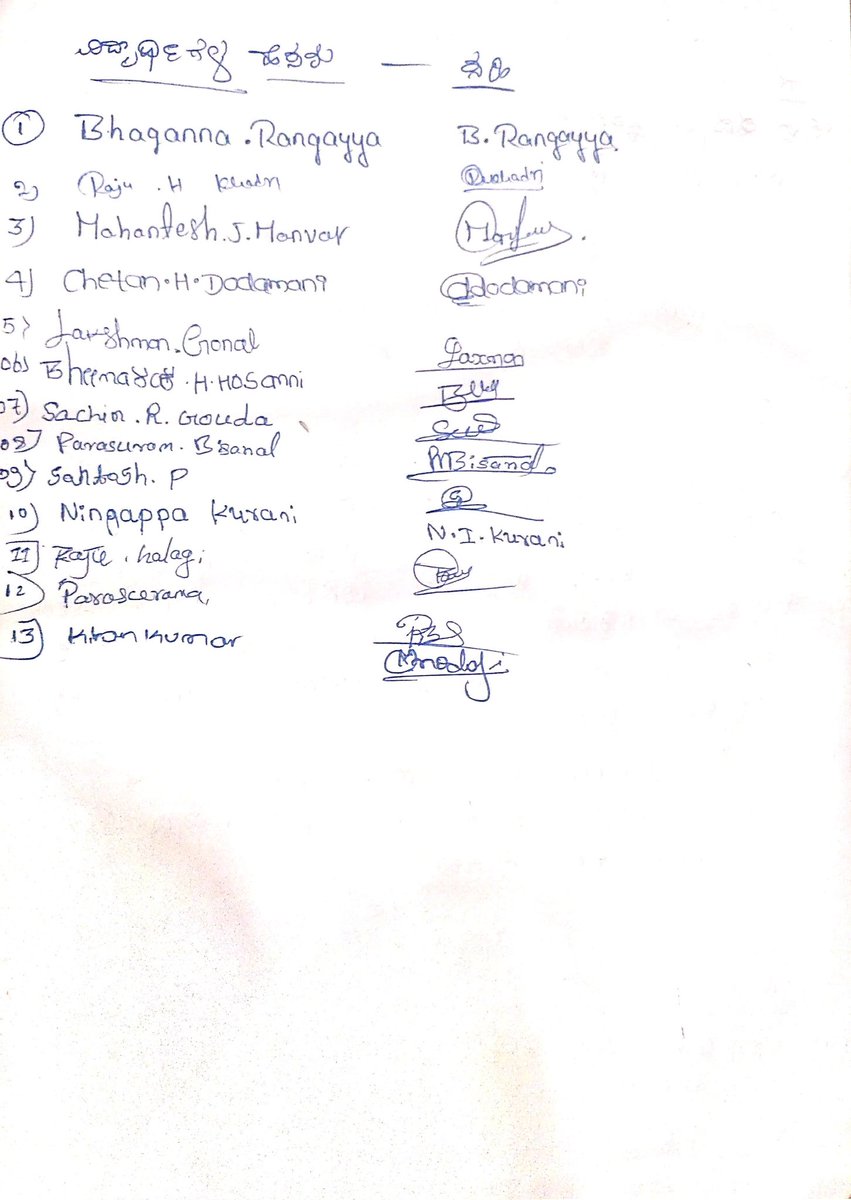 ವಿದ್ಯಾರ್ಥಿಗಳ ಹೆಸರು — ಸಹಿ
1 Bhaganna . Rangayya B. Rangayya
2) Raju . H Khadri
3) Mahantesh . J. Manvar
4) Chetan . H . Dodamani Dodamani
5) Gonal Laxman
06) . H . Hosanni
07) Sachin . R. Gouda
08) Parasuram . Bisanal Bisanal
09) Santosh . P
10) Ningappa Kurani N. I. Kurani
11) Raju . halagi
12)
13) Kirankumar